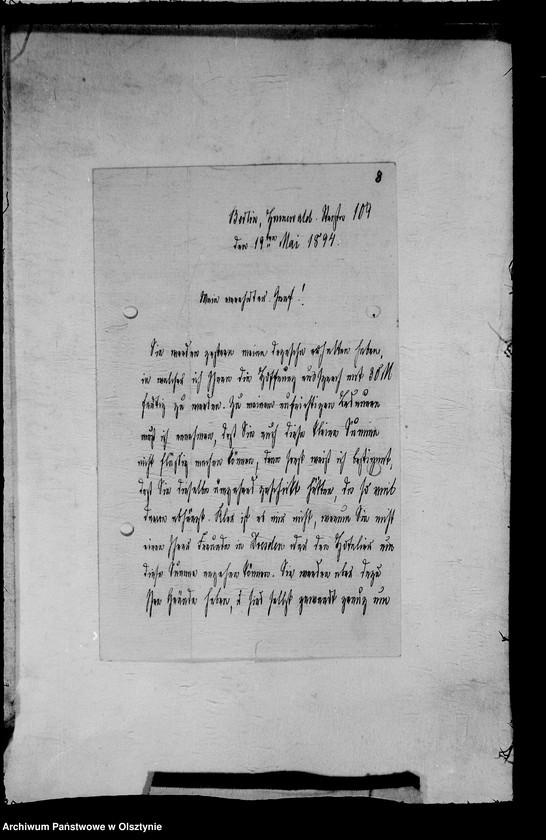 8
Berlin, Grunewald. Str. 104
den 19ten Mai 1894.
Mein verehrter Graf!
Sie werden gestern meine Depesche erhalten haben,
in welcher ich Ihnen die Hoffnung aussprach mit 30 M
fertig zu werden. Zu meinem aufrichtigen Bedauern
muß ich annehmen, daß Sie auch diese kleine Summe
nicht flüssig machen können, denn sonst weiß ich bestimmt,
daß Sie dieselbe umgehend geschickt hätten, da so viel
davon abhängt. Klar ist es mir nicht, warum Sie nicht
einen Ihrer Freunde in Dresden oder den Hotelier um
diese Summe angehen können. Sie werden aber dazu
Ihre Gründe haben, u sind selbst gewandt genug um
Archiwum Państwowe w Olsztynie